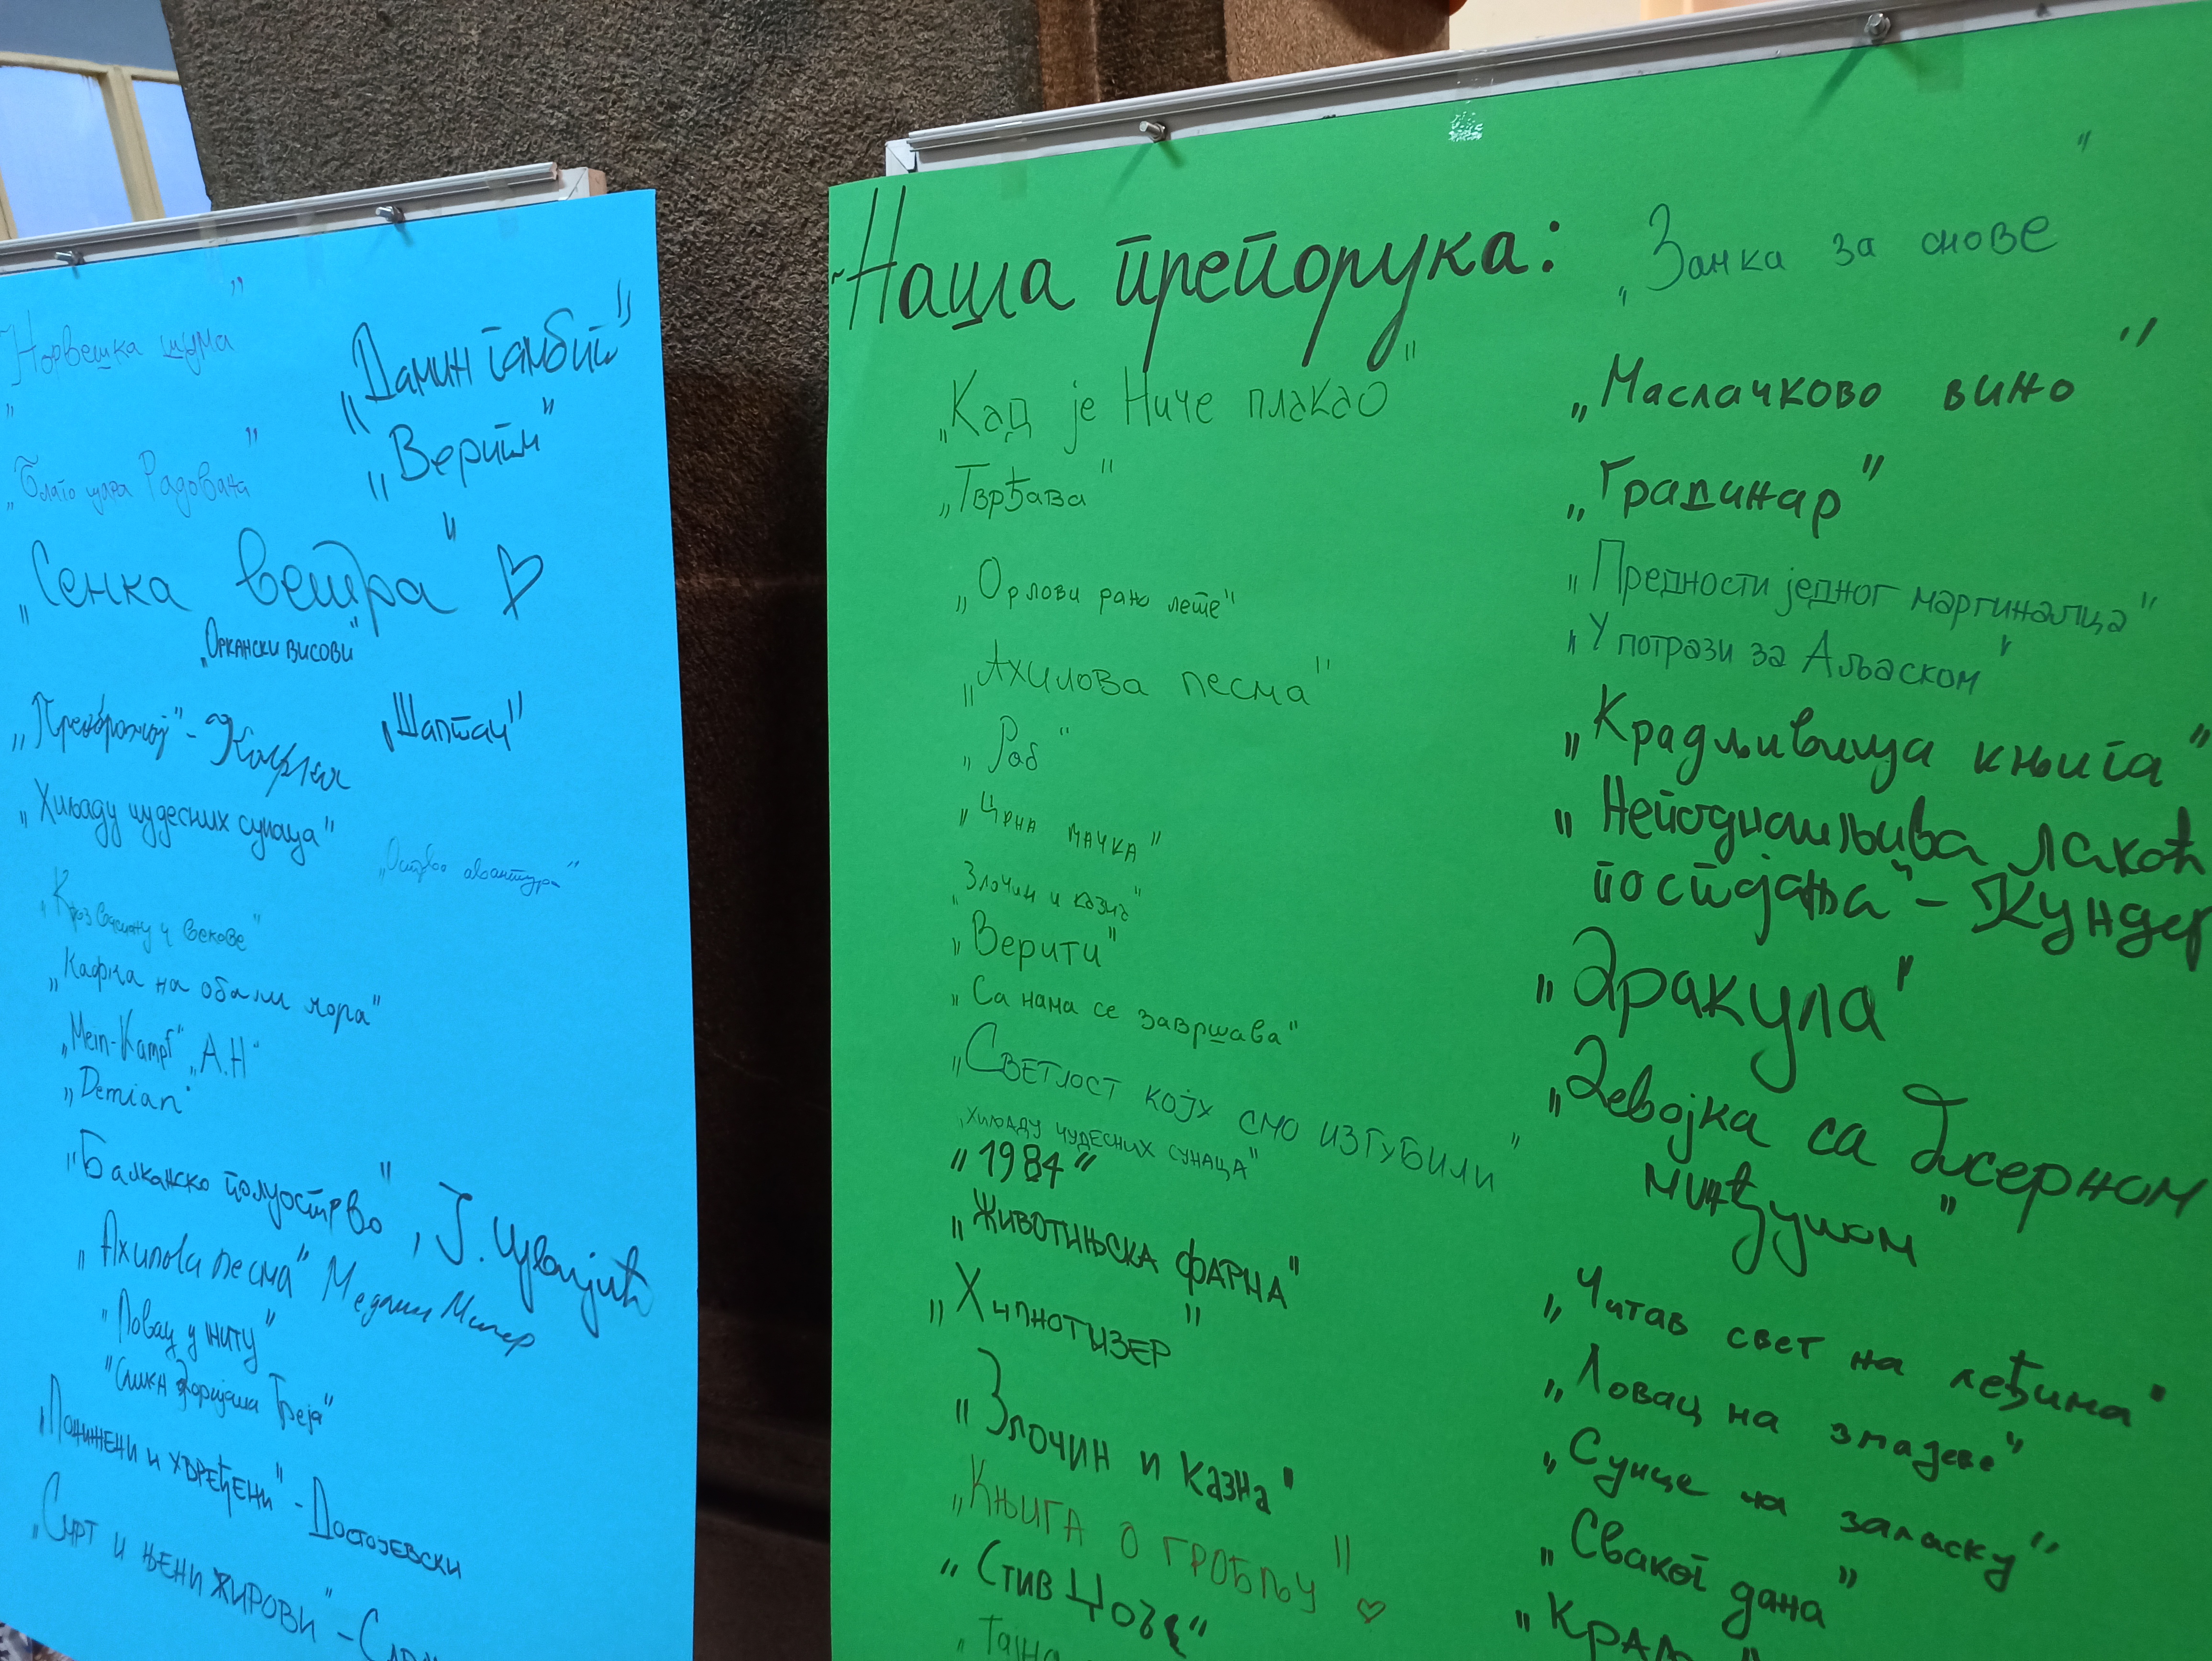 „Норвешка шума"
„Дамин гамбит"
„Верити"
„Благо цара Радована"
„Сенка ветра"
„Оркански висови"
„Преображај" - Кафка
„Шаптач"
„Хиљаду чудесних сунаца"
„Острво авантура"
„Кроз васиону и векове"
„Кафка на обали мора"
„Mein-Kampf" „А.Н"
„Demian"
„Балканско полуострво", Ј. Цвијић
„Ахилова песма" Медлин Милер
„Ловац у житу"
"Слика Доријана Греја"
„Понижени и увређени" - Достојевски
„Смрт и њени хирови" -
Наша препорука:
„Кад је Ниче плакао"
„Тврђава"
„Орлови рано лете"
„Ахилова песма"
„Роб"
„Црна мачка"
„Злочин и казна"
„Верити"
„Са нама се завршава"
„Светлост коју смо изгубили"
„Хиљаду чудесних сунаца"
„1984"
„Животињска фарма"
„Хипнотизер"
„Злочин и казна"
„Књига о гробљу"
„Стив Џобс"
„Тајна
„Замка за снове"
„Маслачково вино"
„Градинар"
„Предности једног маргиналца"
„У потрази за Аљаском"
„Крадљивица књига"
„Неподношљива лакоћ
постојања" - Кундер
„Дракула"
„Девојка са бисерном
минђушом"
„Читав свет на леђима"
„Ловац на змајеве"
„Сунце на заласку"
„Сваког дана"